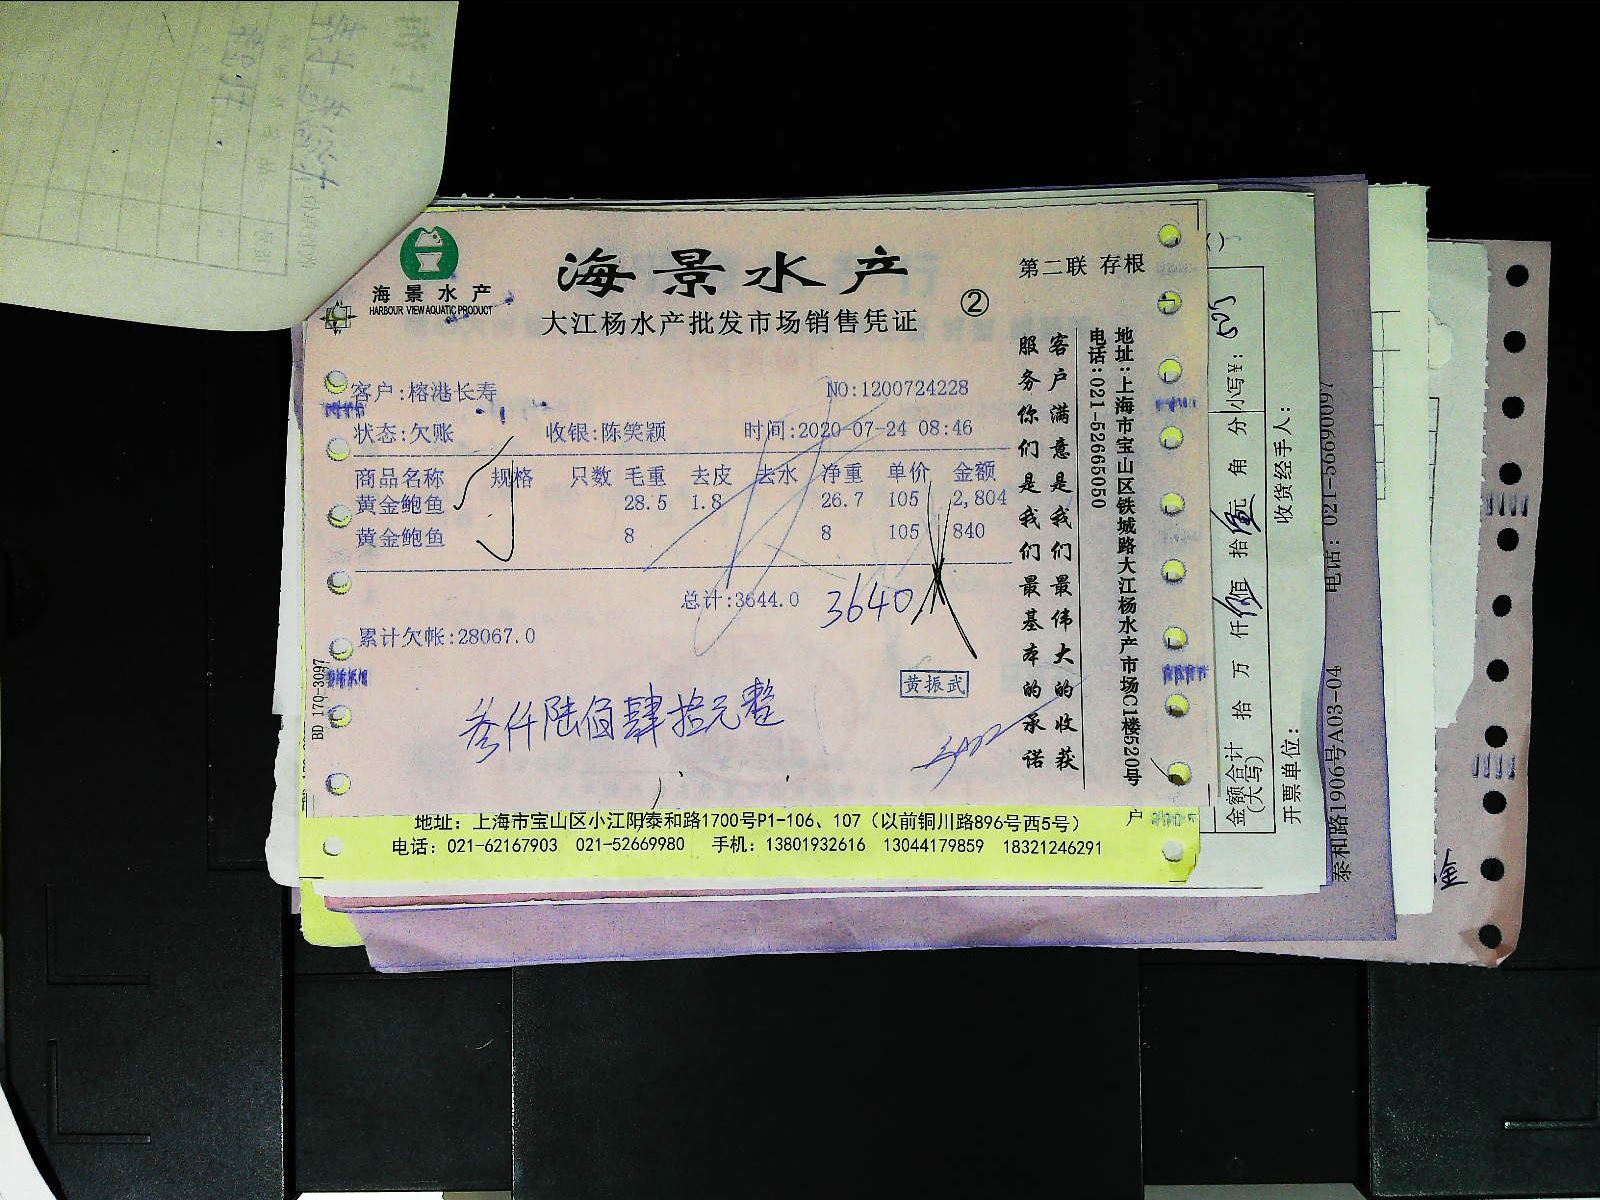 海景水产
HARBOUR VIEW AQUATIC PRODUCT
海景水产
大江杨水产批发市场销售凭证
②
第二联 存根
客户:榕港长寿
NO:1200724228
状态:欠账 收银:陈笑颖 时间:2020-07-24 08:46
商品名称 规格 只数 毛重 去皮 去水 净重 单价 金额
黄金鲍鱼 28.5 1.8 26.7 105 2,804
黄金鲍鱼 8 8 105 840
总计:3644.0 3640
累计欠帐:28067.0
黄振武
叁仟陆佰肆拾元整
BD 170-3097
客户满意是我们最伟大的收获
服务你们是我们最基本的承诺
地址:上海市宝山区铁城路大江杨水产市场C1楼520号
电话:021-52665050
地址：上海市宝山区小江阳泰和路1700号P1-106、107（以前铜川路896号西5号）
电话：021-62167903 021-52669980 手机：13801932616 13044179859 18321246291
户
金额合计(大写) 拾 万 仟 佰 拾 元 角 分 小写¥：
开票单位： 收货经手人：
泰和路1906号A03-04 电话：021-56690097
金